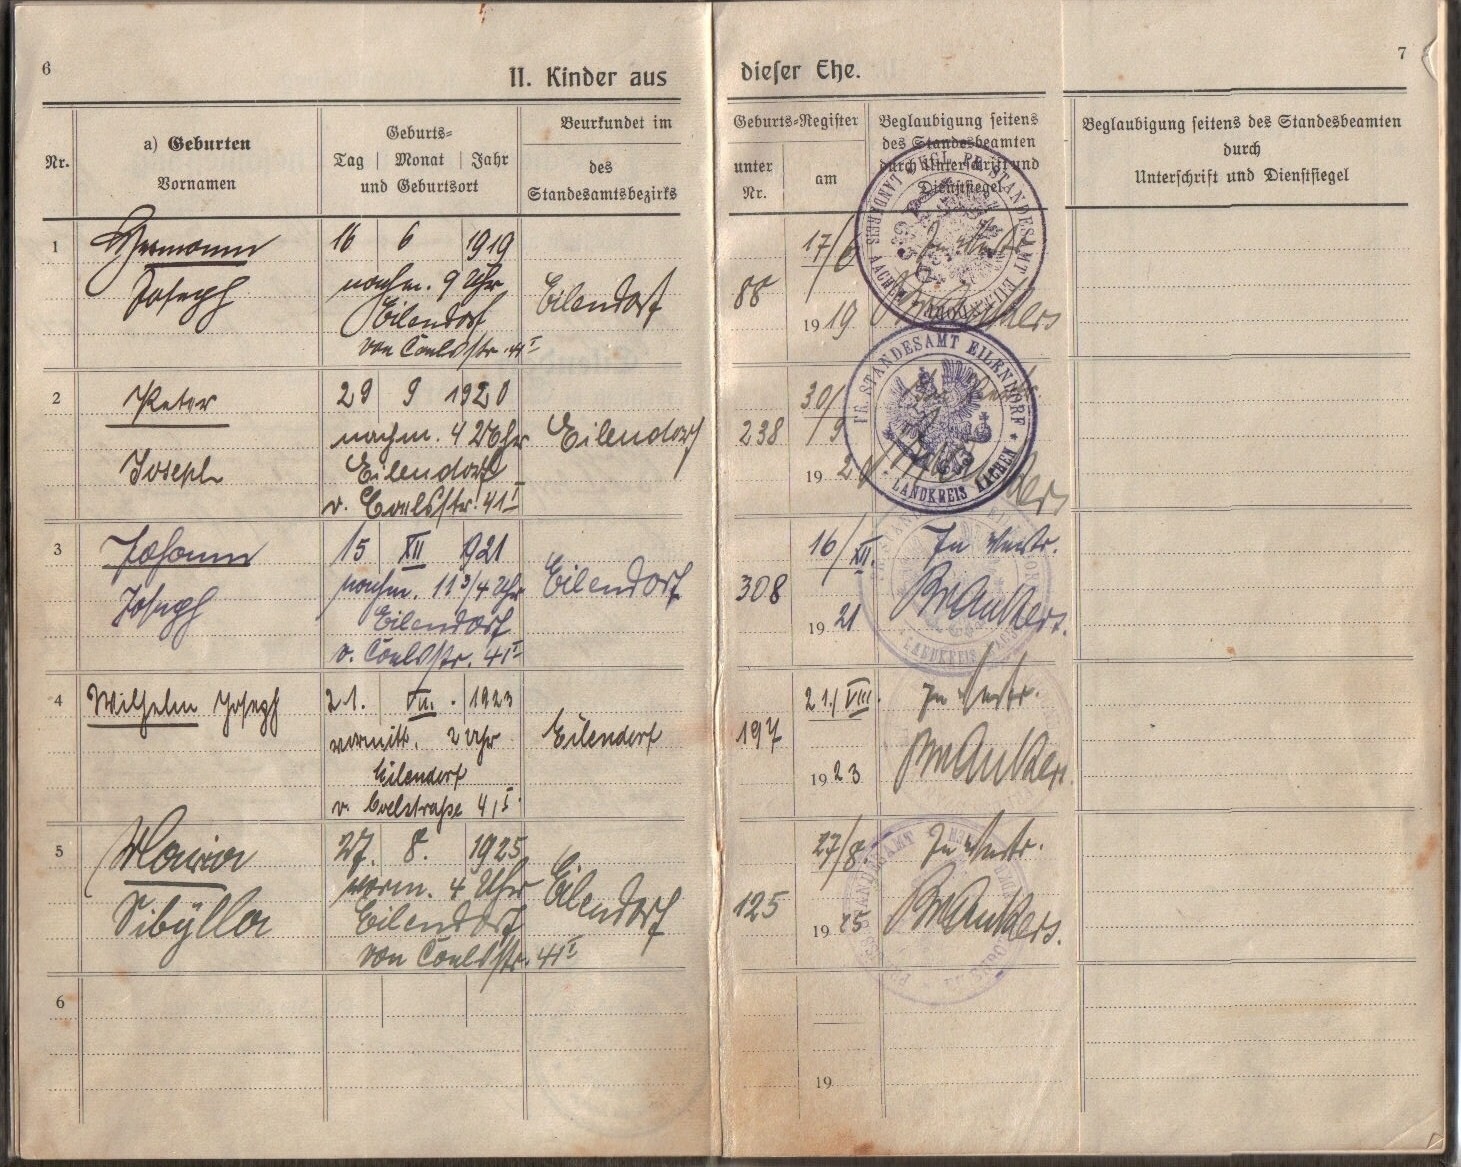 6
II. Kinder aus dieser Ehe.
7
Nr.
a) Geburten
Vornamen
Geburts=
Tag | Monat | Jahr
und Geburtsort
Beurkundet im
des
Standesamtsbezirks
Geburts=Register
unter
Nr.
am
Beglaubigung seitens
des Standesbeamten
durch Unterschrift und
Dienstsiegel
Beglaubigung seitens des Standesbeamten
durch
Unterschrift und Dienstsiegel
1
Hermann
Joseph
16 6 1919
nachm. 9 Uhr
Eilendorf
von Coelsstr. 41 I
Eilendorf
88
17/6
1919
In Vertr.
STANDESAMT EILENDORF
LANDKREIS AACHEN
2
Peter
Joseph
29 9 1920
nachm. 4 Uhr
Eilendorf
v. Coelsstr. 41 I
Eilendorf
238
30/9
1920
PR. STANDESAMT EILENDORF
* LANDKREIS AACHEN *
3
Johann
Joseph
15 XII 1921
nachm. 11 3/4 Uhr
Eilendorf
v. Coelsstr. 41 I
Eilendorf
308
16/XII.
1921
In Vertr.
LANDKREIS AACHEN
4
Wilhelm Joseph
21. VIII. 1923
vormitt. 2 Uhr
Eilendorf
v. Coelstraße 41 I
Eilendorf
197
21./VIII.
1923
In Vertr.
5
Maria
Sibylla
27. 8. 1925
vorm. 4 Uhr
Eilendorf
von Coelsstr. 41 I
Eilendorf
125
27/8.
1925
In Vertr.
6
19